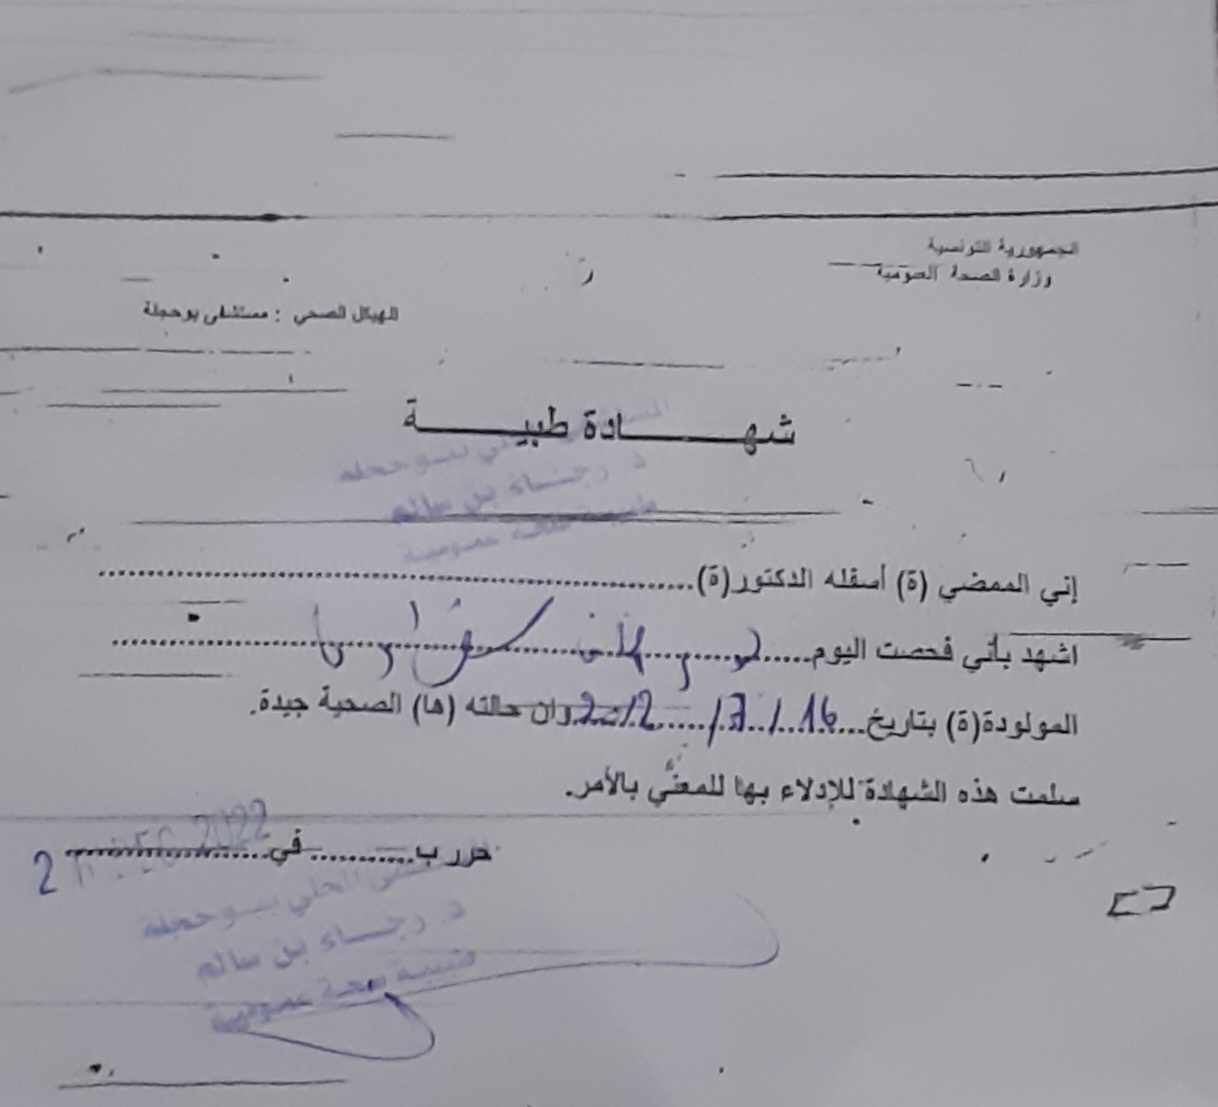 الجمهورية التونسية
وزارة الصحة العمومية
الهيكل الصحي : مستشفى بوحجلة
شهـــــادة طبيـــــة
بوحجلة
د. رجاء بن سالم
طبيبة صحة عمومية
إني الممضي (ة) أسفله الدكتور(ة)
اشهد بأني فحصت اليوم
المولودة(ة) بتاريخ 16 / 7 / 2012 وان حالته (ها) الصحية جيدة.
سلمت هذه الشهادة للإدلاء بها للمعني بالأمر.
حرر ب.......... في 2022
2
المحلي ببوحجلة
د. رجاء بن سالم
طبيبة صحة عمومية